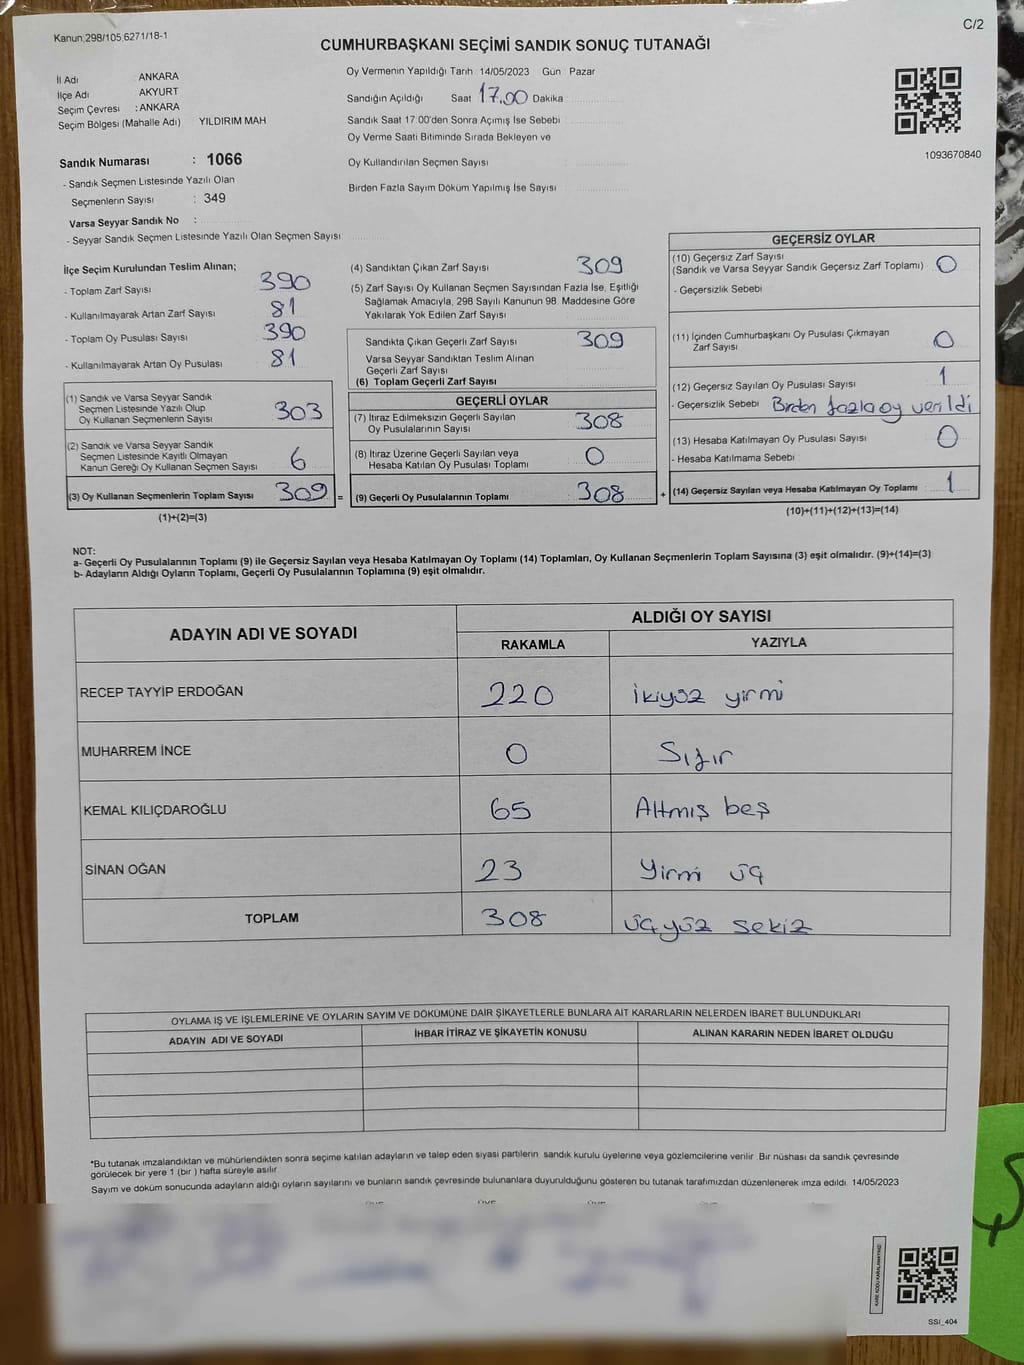 Kanun;298/105;6271/18-1
C/2
CUMHURBAŞKANI SEÇİMİ SANDIK SONUÇ TUTANAĞI
İl Adı : ANKARA
İlçe Adı : AKYURT
Seçim Çevresi : ANKARA
Seçim Bölgesi (Mahalle Adı) YILDIRIM MAH
Sandık Numarası : 1066
- Sandık Seçmen Listesinde Yazılı Olan
Seçmenlerin Sayısı : 349
Varsa Seyyar Sandık No :
- Seyyar Sandık Seçmen Listesinde Yazılı Olan Seçmen Sayısı
Oy Vermenin Yapıldığı Tarih 14/05/2023 Gün Pazar
Sandığın Açıldığı Saat 17.00 Dakika
Sandık Saat 17:00'den Sonra Açımış İse Sebebi
Oy Verme Saati Bitiminde Sırada Bekleyen ve
Oy Kullandırılan Seçmen Sayısı
Birden Fazla Sayım Döküm Yapılmış İse Sayısı
1093670840
İlçe Seçim Kurulundan Teslim Alınan;
- Toplam Zarf Sayısı 390
- Kullanılmayarak Artan Zarf Sayısı 81
- Toplam Oy Pusulası Sayısı 390
- Kullanılmayarak Artan Oy Pusulası 81
(1) Sandık ve Varsa Seyyar Sandık
Seçmen Listesinde Yazılı Olup
Oy Kullanan Seçmenlerin Sayısı 303
(2) Sandık ve Varsa Seyyar Sandık
Seçmen Listesinde Kayıtlı Olmayan
Kanun Gereği Oy Kullanan Seçmen Sayısı 6
(3) Oy Kullanan Seçmenlerin Toplam Sayısı 309 =
(1)+(2)=(3)
(4) Sandıktan Çıkan Zarf Sayısı 309
(5) Zarf Sayısı Oy Kullanan Seçmen Sayısından Fazla İse, Eşitliği
Sağlamak Amacıyla, 298 Sayılı Kanunun 98. Maddesine Göre
Yakılarak Yok Edilen Zarf Sayısı
Sandıkta Çıkan Geçerli Zarf Sayısı 309
Varsa Seyyar Sandıktan Teslim Alınan
Geçerli Zarf Sayısı
(6) Toplam Geçerli Zarf Sayısı
GEÇERLİ OYLAR
(7) İtiraz Edilmeksizin Geçerli Sayılan
Oy Pusulalarının Sayısı 308
(8) İtiraz Üzerine Geçerli Sayılan veya
Hesaba Katılan Oy Pusulası Toplamı 0
(9) Geçerli Oy Pusulalarının Toplamı 308 +
GEÇERSİZ OYLAR
(10) Geçersiz Zarf Sayısı
(Sandık ve Varsa Seyyar Sandık Geçersiz Zarf Toplamı) 0
- Geçersizlik Sebebi
(11) İçinden Cumhurbaşkanı Oy Pusulası Çıkmayan
Zarf Sayısı 0
(12) Geçersiz Sayılan Oy Pusulası Sayısı 1
- Geçersizlik Sebebi Birden fazla oy verildi
(13) Hesaba Katılmayan Oy Pusulası Sayısı 0
- Hesaba Katılmama Sebebi
(14) Geçersiz Sayılan veya Hesaba Katılmayan Oy Toplamı 1
(10)+(11)+(12)+(13)=(14)
NOT:
a- Geçerli Oy Pusulalarının Toplamı (9) ile Geçersiz Sayılan veya Hesaba Katılmayan Oy Toplamı (14) Toplamları, Oy Kullanan Seçmenlerin Toplam Sayısına (3) eşit olmalıdır. (9)+(14)=(3)
b- Adayların Aldığı Oyların Toplamı, Geçerli Oy Pusulalarının Toplamına (9) eşit olmalıdır.
ADAYIN ADI VE SOYADI ALDIĞI OY SAYISI
RAKAMLA YAZIYLA
RECEP TAYYİP ERDOĞAN 220 ikiyüz yirmi
MUHARREM İNCE 0 Sıfır
KEMAL KILIÇDAROĞLU 65 Altmış beş
SİNAN OĞAN 23 Yirmi üç
TOPLAM 308 üçyüz sekiz
OYLAMA İŞ VE İŞLEMLERİNE VE OYLARIN SAYIM VE DÖKÜMÜNE DAİR ŞİKAYETLERLE BUNLARA AİT KARARLARIN NELERDEN İBARET BULUNDUKLARI
ADAYIN ADI VE SOYADI İHBAR İTİRAZ VE ŞİKAYETİN KONUSU ALINAN KARARIN NEDEN İBARET OLDUĞU
*Bu tutanak imzalandıktan ve mühürlendikten sonra seçime katılan adayların ve talep eden siyasi partilerin sandık kurulu üyelerine veya gözlemcilerine verilir. Bir nüshası da sandık çevresinde
görülecek bir yere 1 (bir ) hafta süreyle asılır.
Sayım ve döküm sonucunda adayların aldığı oyların sayılarını ve bunların sandık çevresinde bulunanlara duyurulduğunu gösteren bu tutanak tarafımızdan düzenlenerek imza edildi. 14/05/2023
KARE KODU KARALAMAYINIZ!
SSİ_404